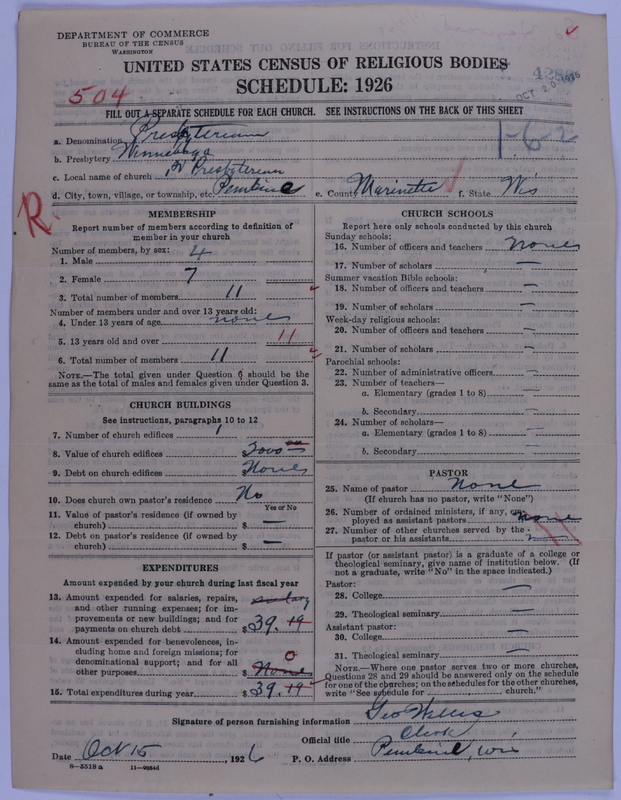 DEPARTMENT OF COMMERCE
BUREAU OF THE CENSUS
WASHINGTON
UNITED STATES CENSUS OF RELIGIOUS BODIES
SCHEDULE: 1926
504
OCT 20 1926
FILL OUT A SEPARATE SCHEDULE FOR EACH CHURCH. SEE INSTRUCTIONS ON THE BACK OF THIS SHEET
1-6-2
a. Denomination Presbyterian
b. Presbytery Winnebago
c. Local name of church 1st Presbyterian
d. City, town, village, or township, etc. Pembine e. County Marinette f. State Wis
R
MEMBERSHIP
Report number of members according to definition of
member in your church
Number of members, by sex:
1. Male 4
2. Female 7
3. Total number of members 11
Number of members under and over 13 years old:
4. Under 13 years of age none
5. 13 years old and over 11
6. Total number of members 11
NOTE.—The total given under Question 6 should be the
same as the total of males and females given under Question 3.
CHURCH BUILDINGS
See instructions, paragraphs 10 to 12
7. Number of church edifices 1
8. Value of church edifices $3000 00
9. Debt on church edifices $None
10. Does church own pastor's residence No
Yes or No
11. Value of pastor's residence (if owned by
church) $ —
12. Debt on pastor's residence (if owned by
church) $ —
EXPENDITURES
Amount expended by your church during last fiscal year
13. Amount expended for salaries, repairs,
and other running expenses; for im-
provements or new buildings; and for
payments on church debt $39.19
14. Amount expended for benevolences, in-
cluding home and foreign missions; for
denominational support; and for all
other purposes $None 0
15. Total expenditures during year $39.19
CHURCH SCHOOLS
Report here only schools conducted by this church
Sunday schools:
16. Number of officers and teachers none
17. Number of scholars —
Summer vacation Bible schools:
18. Number of officers and teachers —
19. Number of scholars —
Week-day religious schools:
20. Number of officers and teachers —
21. Number of scholars —
Parochial schools:
22. Number of administrative officers —
23. Number of teachers—
a. Elementary (grades 1 to 8) —
b. Secondary —
24. Number of scholars—
a. Elementary (grades 1 to 8) —
b. Secondary —
PASTOR
25. Name of pastor None
(If church has no pastor, write "None")
26. Number of ordained ministers, if any, em-
ployed as assistant pastors none
27. Number of other churches served by the
pastor or his assistants
If pastor (or assistant pastor) is a graduate of a college or
theological seminary, give name of institution below. (If
not a graduate, write "No" in the space indicated.)
Pastor:
28. College —
29. Theological seminary —
Assistant pastor:
30. College —
31. Theological seminary —
NOTE.—Where one pastor serves two or more churches,
Questions 28 and 29 should be answered only on the schedule
for one of the churches; on the schedules for the other churches,
write "See schedule for church."
Signature of person furnishing information Geo Willis
Official title Clerk
Date Oct 15, 1926 P. O. Address Pembine, Wis
8-5518 a